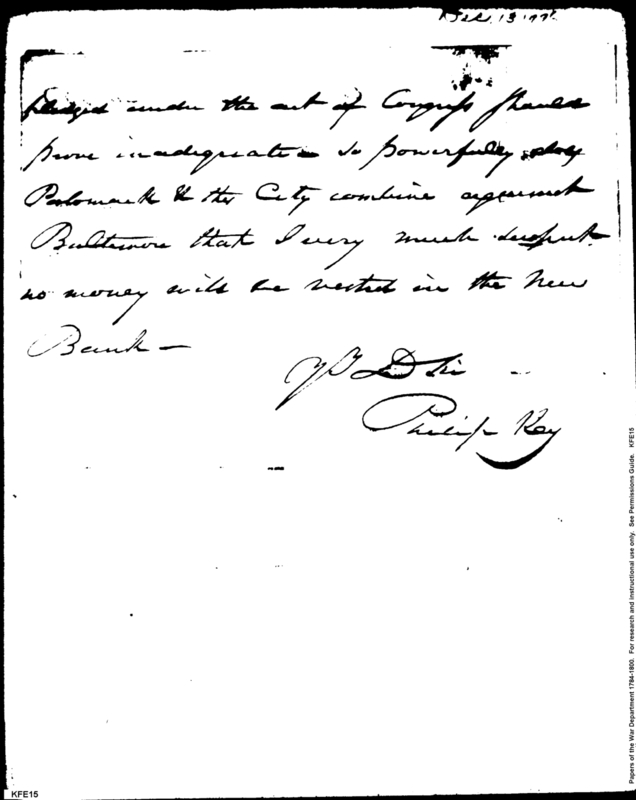 Dec. 13 179
pledged under the act of Congress should
prove inadequate – so powerfully does
Potomack & the City combine against
Baltimore that I very much suspect
no money will be vested in the New
Bank –
Yrs D Sir
Philip Key
Papers of the War Department 1784-1800. For research and instructional use only. See Permissions Guide. KFE15
KFE15